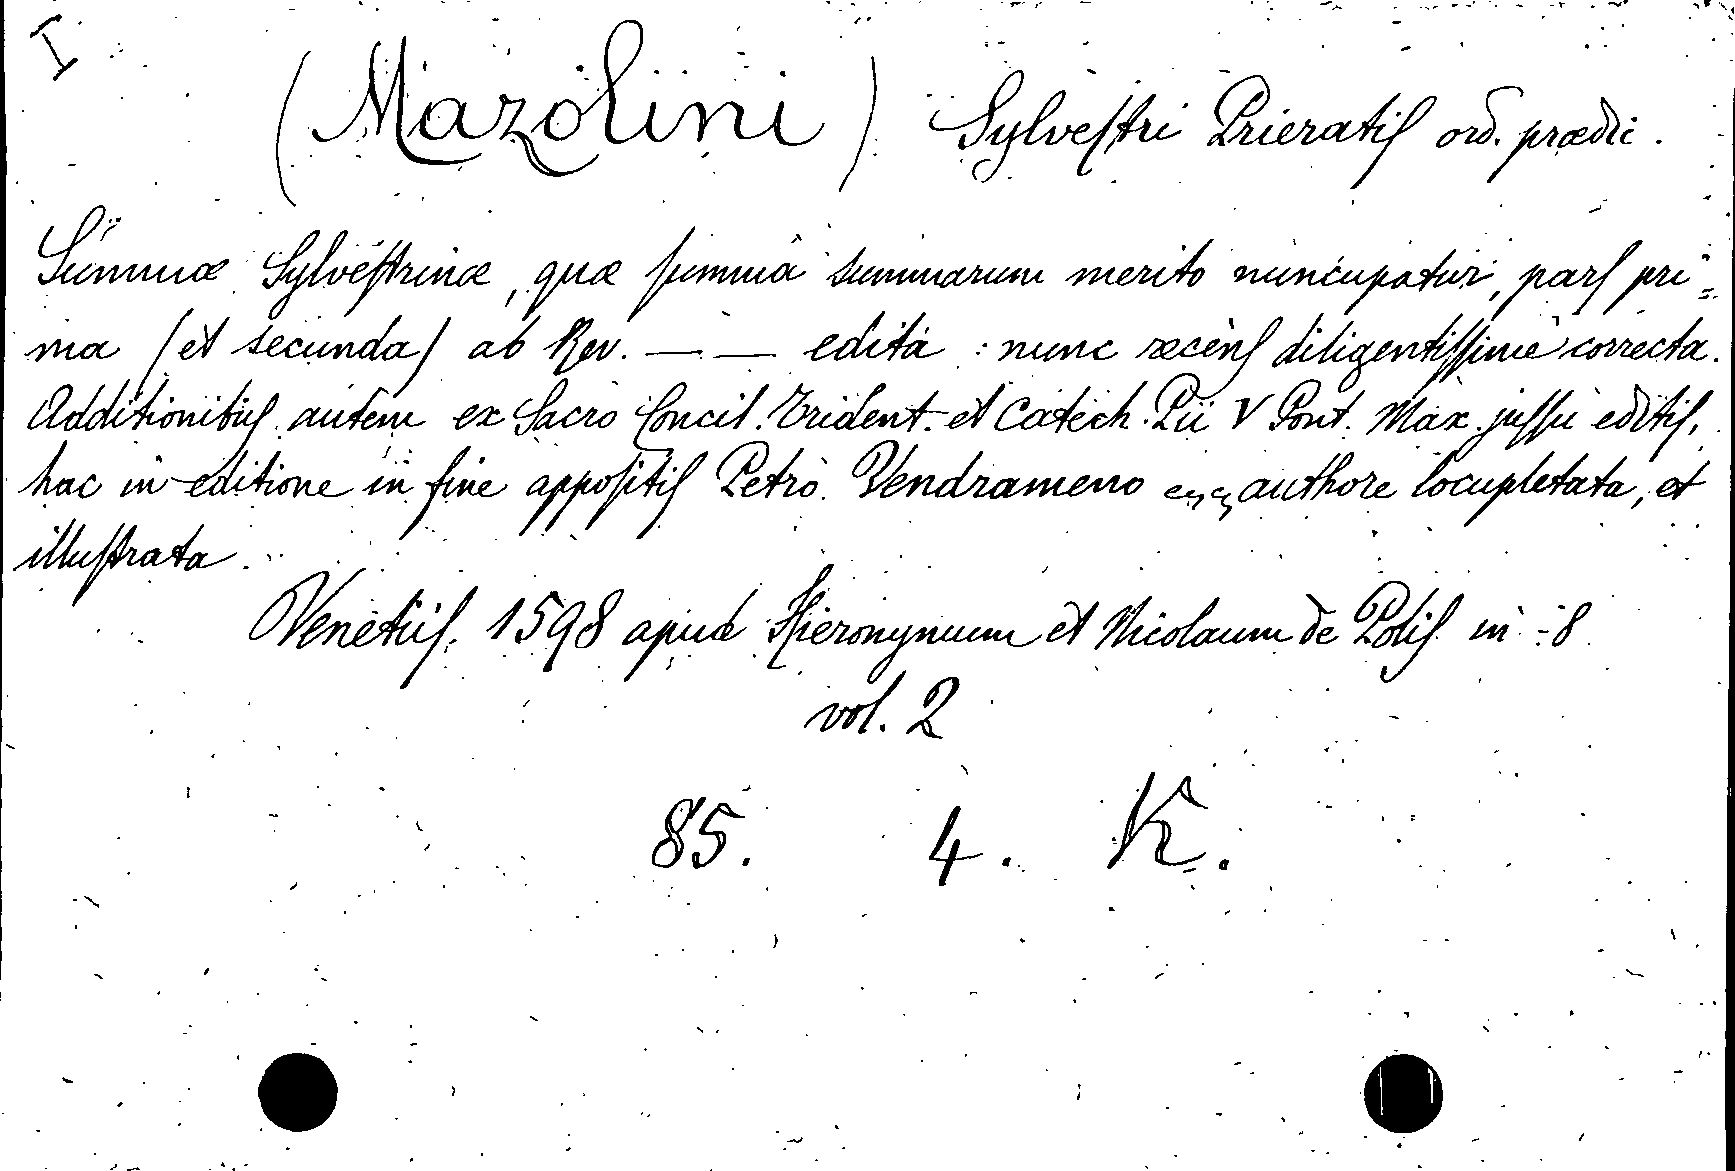 I
(Mazolini) Sylvestri Prieratis ord. prædic.
Summæ Sylvestrinæ, quæ summa summarum merito nuncupatur, pars pri=
ma (et secunda) ab Rev. — — edita: nunc recens diligentissime correcta.
Additionibus autem ex Sacro Concil. Trident. et Catech. Pii V Pont. Max. jussu editis,
hac in editione in fine appositis Petro Vendrameno authore locupletata, et
illustrata.
Venetiis. 1598 apud Hieronymum et Nicolaum de Polis in-8
vol. 2
85. 4. K.